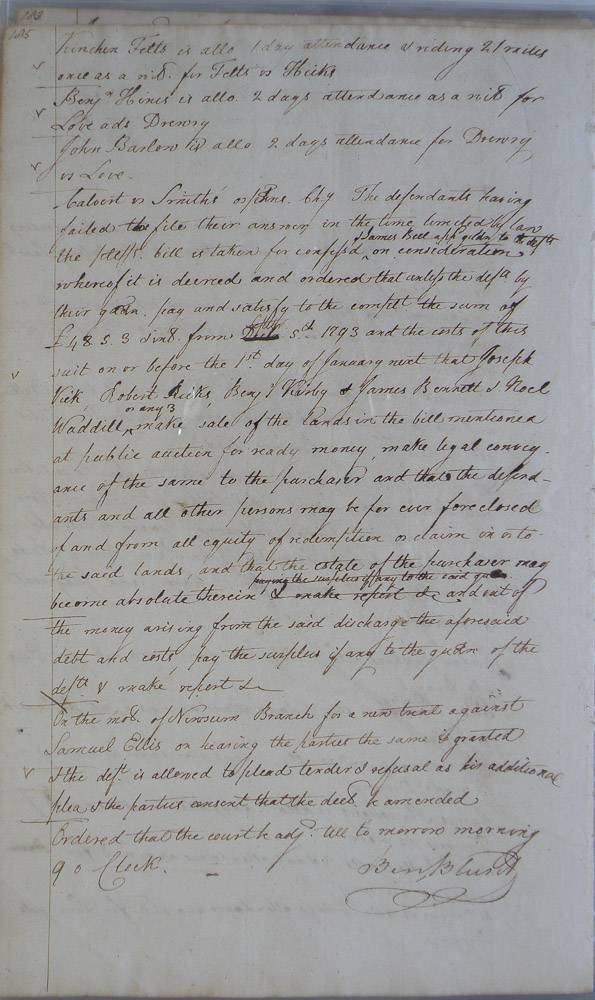 183
185
Kinchen Felts is allo 1 day attendance & riding 21 miles
once as a witS. for Felts vs Hicks
Benjn Hines is allo. 2 days attendance as a witS for
Love ads Drewry
John Barlow is allo 2 days attendance for Drewry
vs Love.
Calvert vs Smiths Chy The defendants having
failed to file their answer in the time directed by law
& James Bell appd guardn to the defts
the pltffs. bill is taken for confessd, on consideration
whereof it is decreed and ordered that unless the defts by
their guardn. pay and satisfy to the complt the sum of
£48.5.3 with int. from 5th 1793 and the costs of this
suit on or before the 1st. day of January next that Joseph
Vick, Robert Ricks, Benjn Kirby & James Bennett & Noel
or any 3
Waddill, make sale of the lands in the bill mentioned
at public auction for ready money, make legal convey-
ance of the same to the purchaser and that the defend-
ants and all other persons may be for ever foreclosed
of and from all equity of redemption or claim in or to
the said lands, and that the estate of the purchaser may
paying the surplus if any to the said guardn
become absolute therein & make report &c and out of
the money arising from the said discharge the aforesaid
debt and costs, pay the surplus if any to the guardn of the
defts & make report &c
On the moS. of Newsum Branch for a new trial against
Samuel Ellis on hearing the parties the same is granted
& the deft. is allowed to plead tender & refusal as his additional
plea & the parties consent that the decS. be amended
Ordered that the court be adjd. till to morrow morning
9 o Clock.
Ben Blunt